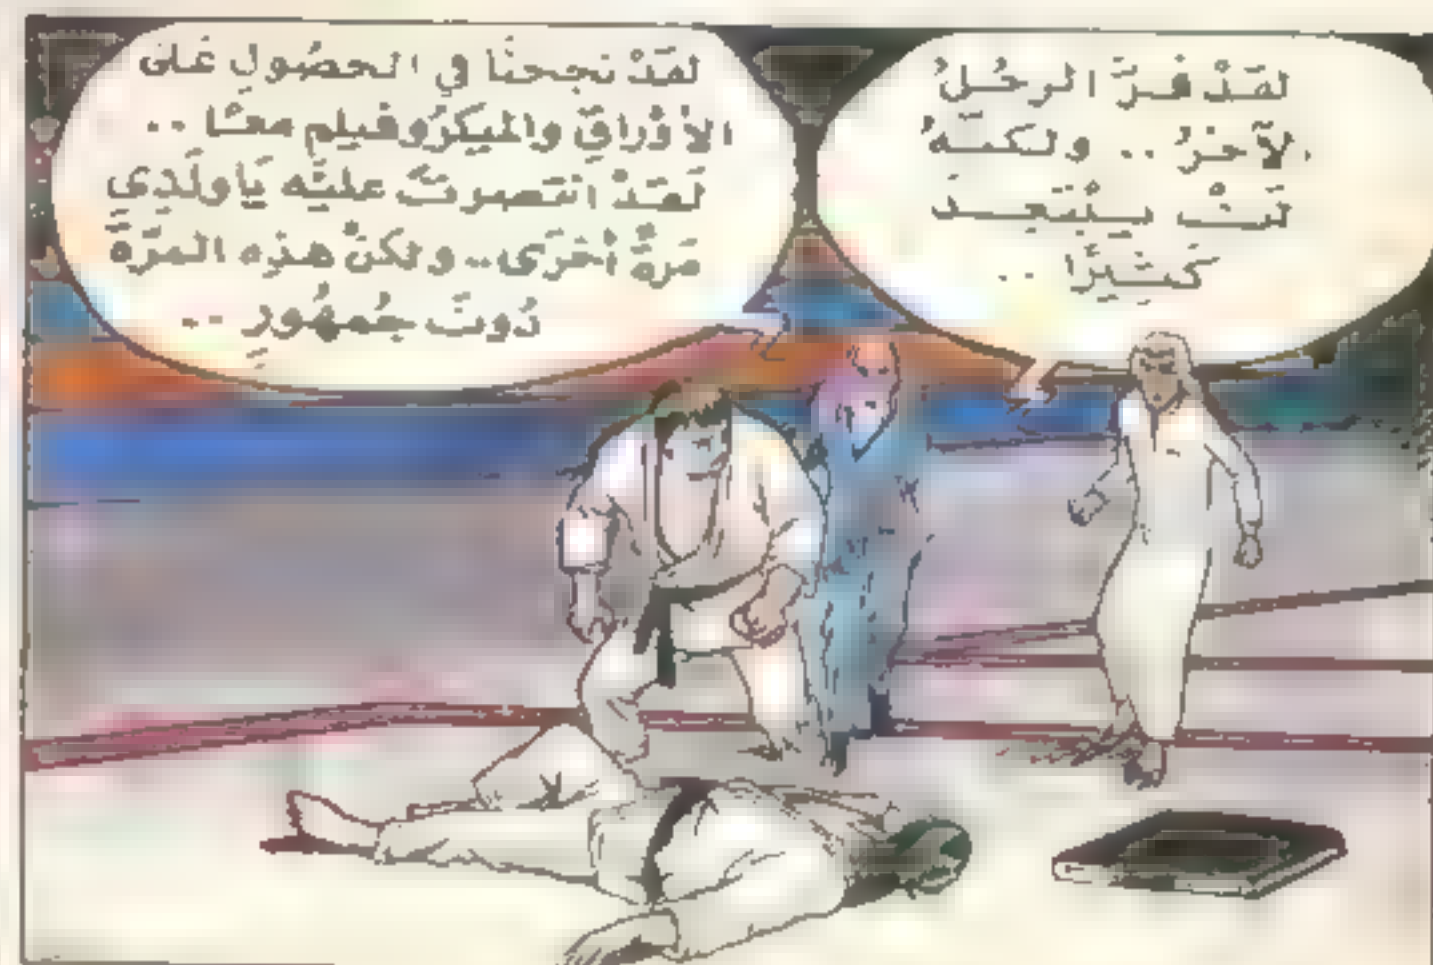 لقَدْ فَرَّ الرجُلُ
الآخرُ .. ولكنَّهُ
لَنْ يبْتَعِدَ
كَثِيرًا ..
لقَدْ نجحنَا في الحصُولِ عَلى
الأوْراقِ والميكرُوفيلمِ معًا ..
لَقَدْ انتصرتَ عليْه يَاولَدِي
مَرةً أخرَى .. ولكنْ هذِه المرّةَ
دُونَ جُمهُورٍ ..